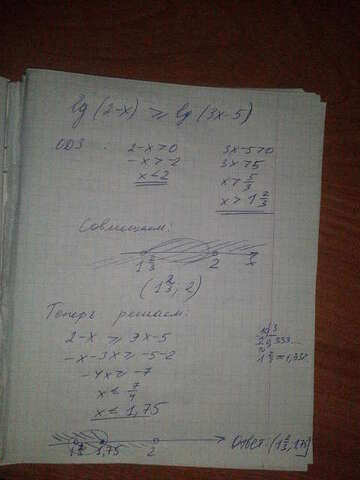 lg (2-x) ⩾ lg (3x-5)
ОДЗ : 2-x>0 3x-5>0
-x>-2 3x>5
x<2 x>5/3
x>1 2/3
Совмещаем:
1 2/3 2 x
(1 2/3; 2)
Теперь решаем:
2-x ⩾ 3x-5
-x-3x⩾-5-2
-4x⩾-7
x ⩽ 7/4
x ⩽ 1,75
1 2/3 1,75 2 Ответ: (1 2/3; 1,75]